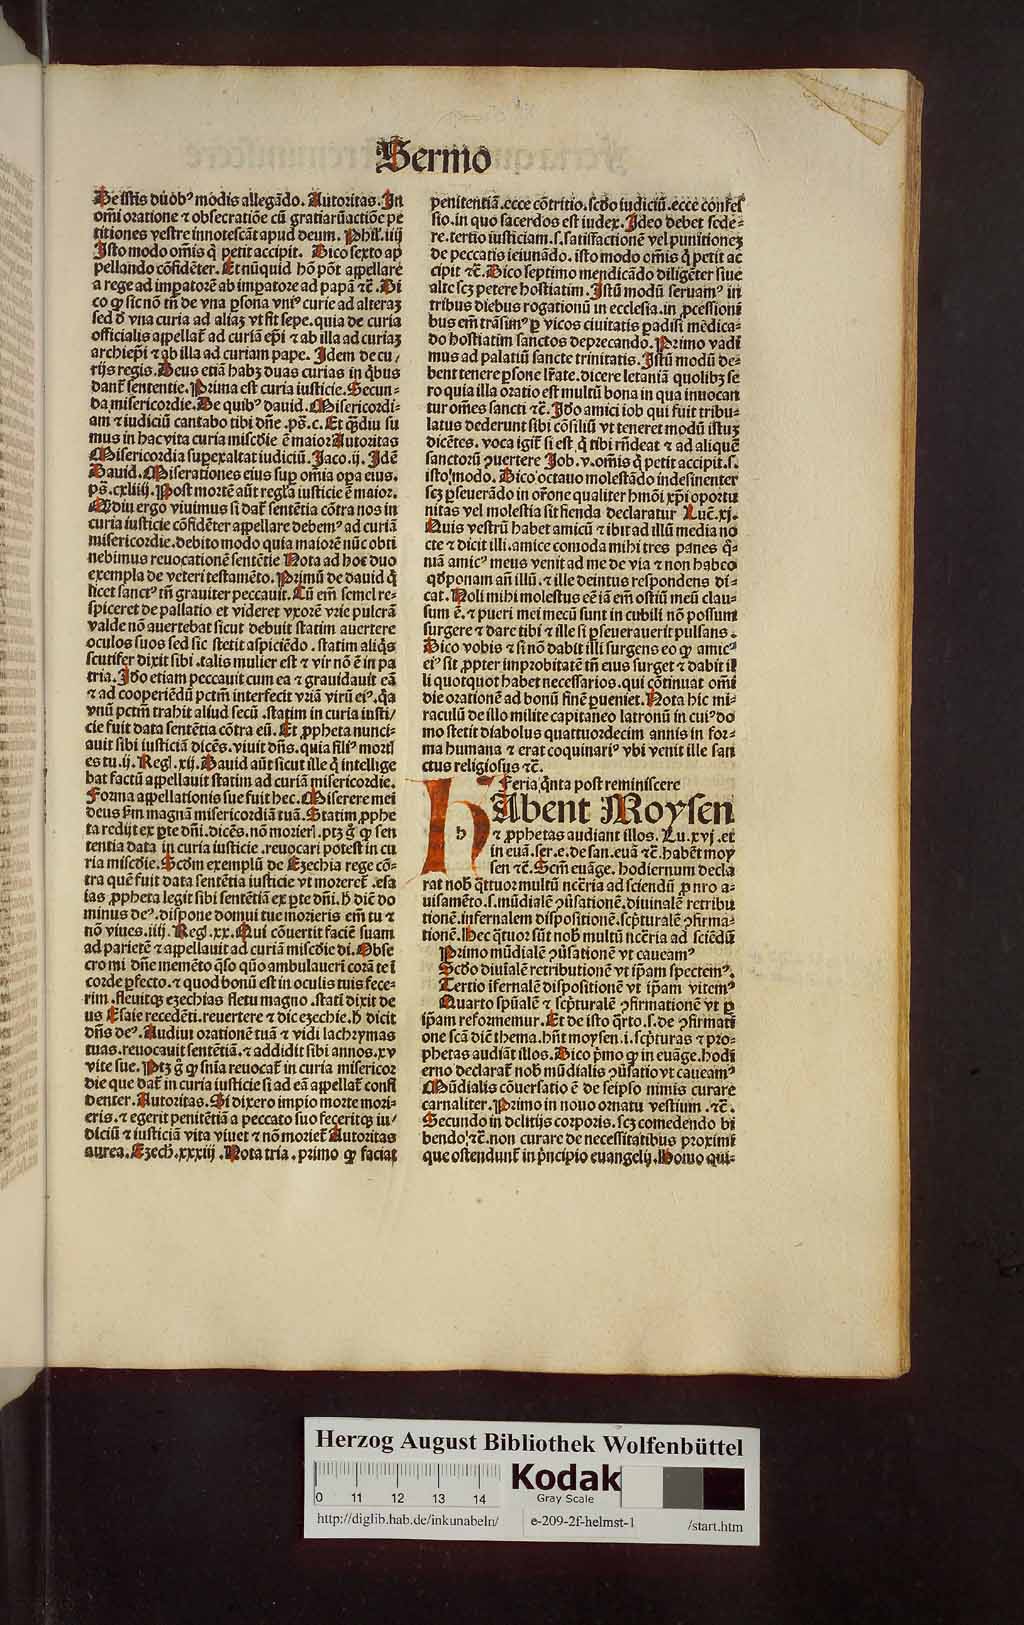 Sermo
De istis duobꝰ modis allegādo. Autoritas. In
om̄i oratione ⁊ obsecratiōe cū gratiarū actiōe pe
titiones vestre innotescāt apud deum. Phil. iiij
Isto modo om̄is q̇ petit accipit. Dico sexto ap
pellando cōfidēter. Et nūquid hō pōt appellare
a rege ad impatorē ab impatore ad papā ⁊c̄. Di
co ꝙ sic nō tn̄ de vna ꝑsona vniꝰ curie ad alteraꝫ
sed d̄ vna curia ad aliaꝫ vt fit sepe. quia de curia
officialis appellat̄ ad curiā ep̄i ⁊ ab illa ad curiaꝫ
archiep̄i ⁊ ab illa ad curiam pape. Idem de cu/
rijs regis. Deus etiā habꝫ duas curias in q̇bus
dant̄ sententie. Prima est curia iusticie. Secun-
da misericordie. De quibꝰ dauid. Misericordi-
am ⁊ iudiciū cantabo tibi dn̄e. ps̄. c. Et q̄diu su
mus in hac vita curia misc̄die ē maior Autoritas
Misericordia supexaltat iudiciū. Jaco. ij. Idē
Dauid. Miserationes eius sup om̄ia oꝑa eius.
ps̄. cxliiij. Post mortē aūt regła iusticie ē maior.
Q̄diu ergo viuimus si dat̄ sentētia cōtra nos in
curia iusticie cōfidēter appellare debemꝰ ad curiā
misericordie. debito modo quia maiorē nūc obti
nebimus reuocationē sentētie Nota ad hoc duo
exempla de veteri testamēto. Primū de dauid q̇
licet sanctꝰ tn̄ grauiter peccauit. Cū em̄ semel re-
spiceret de pallatio et videret vxorē vrie pulcrā
valde nō auertebat sicut debuit statim auertere
oculos suos sed sic stetit aspiciēdo. statim aliq̇s
scutifer dixit sibi. talis mulier est ⁊ vir nō ē in pa
tria. Iđo etiam peccauit cum ea ⁊ grauidauit eā
⁊ ad cooperiēdū pctm̄ interfecit vriā virū eiꝰ. q̄a
vnū pctm̄ trahit aliud secū. statim in curia iusti/
cie fuit data sentētia cōtra eū. Et ꝓpheta nunci-
auit sibi iusticiā dicēs. viuit dn̄s. quia filiꝰ mort̄
es tu. ij. Reg̃. xij. Dauid aūt sicut ille q̇ intellige
bat factū appellauit statim ad curiā misericordie.
Forma appellationis sue fuit hec. Miserere mei
deus fm̄ magnā misericordiā tuā. Statim ꝓphe
ta redijt ex ꝑte dn̄i. dicēs. nō morier̄. ptꝫ g̊ ꝙ sen
tentia data in curia iusticie. reuocari potest in cu
ria misc̄die. Scđm exemplū de Ezechia rege cō-
tra quē fuit data sentētia iusticie vt moreret̄. esa
ias ꝓpheta legit sibi sentētiā ex ꝑte dn̄i. h̄ dic̄ do
minus deꝰ. dispone domui tue morieris em̄ tu ⁊
nō viues. iiij. Reg̃. xx. Qui cōuertit faciē suam
ad parietē ⁊ appellauit ad curiā misc̄die di. Obse
cro mi dn̄e memēto q̄so quō ambulauerī corā te ī
corde ꝑfecto. ⁊ quod bonū est in oculis tuis fece-
rim. fleuitqꝫ ezechias fletu magno. statī dixit de
us Esaie recedēti. reuertere ⁊ dic ezechie. h̄ dicit
dn̄s deꝰ. Audiui orationē tuā ⁊ vidi lachrymas
tuas. reuocauit sentētiā. ⁊ addidit sibi annos. xv
vite sue. Ptꝫ g̊ ꝙ sn̄ia reuocat̄ in curia misericor
die que dat̄ in curia iusticie si ad eā appellat̄ confi
denter. Autoritas. Si dixero impio morte mori-
eris. ⁊ egerit penitētiā a peccato suo feceritqꝫ iu/
diciū ⁊ iusticiā vita viuet ⁊ nō moriet̄ Autoritas
aurea. Ezech. xxxiij. Nota tria. primo ꝙ faciat
penitentiā. ecce cōtritio. scđo iudiciū. ecce confes
sio. in quo sacerdos est iudex. Ideo debet sede-
re. tertio iusticiam. s. satiſfactionē vel punitionēꝫ
de peccatis ieiunādo. isto modo om̄is q̇ petit ac
cipit ⁊c̄. Dico septimo mendicādo diligēter siue
alte scꝫ petere hostiatim. Istū modū seruamꝰ in
tribus diebus rogationū in ecclesia. in ꝓcessioni
bus em̄ trāsimꝰ ꝑ vicos ciuitatis ꝑadisi mēdica-
do hostiatim sanctos deprecando. Primo vadi
mus ad palatiū sancte trinitatis. Istū modū de-
bent tenere ꝑsone lr̄ate. dicere letaniā quolibꝫ se
ro quia illa oratio est multū bona in qua inuocan
tur om̄es sancti ⁊c̄. Iđo amici iob qui fuit tribu-
latus dederunt sibi cōsiliū vt teneret modū istuꝫ
dicētes. voca igit̄ si est q̇ tibi rn̄deat ⁊ ad aliquē
sanctorū ꝯuertere Job. v. om̄is q̇ petit accipit. s.
isto modo. Dico octauo molestādo indesinenter
scꝫ ꝑseuerādo in or̄one qualiter hm̄oi xp̄i oportu
nitas vel molestia sit fienda declaratur Luc̄. xj.
Quis vestrū habet amicū ⁊ ibit ad illū media no
cte ⁊ dicit illi. amice comoda mihi tres panes q̄-
niā amicꝰ meus venit ad me de via ⁊ non habeo
qđ ponam an̄ illū. ⁊ ille deintus respondens di-
cat. Noli mihi molestus eē iā em̄ ostiū meū clau-
sum ē. ⁊ pueri mei mecū sunt in cubili nō possum
surgere ⁊ dare tibi ⁊ ille si ꝑseuerauerit pulsans.
Dico vobis ⁊ si nō dabit illi surgens eo ꝙ amicꝰ
eiꝰ sit ꝓpter improbitatē tn̄ eius surget ⁊ dabit il
li quotquot habet necessarios. qui cōtinuat om̄i
die orationē ad bonū finē ꝑueniet. Nota hic mi-
raculū de illo milite capitaneo latronū in cuiꝰ do
mo stetit diabolus quattuordecim annis in for-
ma humana ⁊ erat coquinariꝰ vbi venit ille san
ctus religiosus ⁊c̄.
Feria q̇nta post reminiscere
HAbent Moysen
h
⁊ ꝓphetas audiant illos. Lu. xvj. et
in euā. fer. e. de san. euā ⁊c̄. habēt moy
sen ⁊c̄. Scm̄ euāge. hodiernum decla
rat nob̄ q̄ttuor multū nc̄ria ad sciendū ꝓ nro a-
uisamēto. s. mūdialē ꝯuersationē. diuinalē retribu
tionē. infernalem dispositionē. scp̄turalē ꝯfirma-
tionē. Hec q̄tuor sūt nob̄ multū nc̄ria ad sciēdū
Primo mūdialē ꝯuersationē vt caueamꝰ
Scđo diuīalē retributionē vt ip̄am spectemꝰ.
Tertio īfernalē dispositionē vt ip̄am vitemꝰ
Quarto spūalē ⁊ scp̄turalē ꝯfirmationē vt ꝑ
ip̄am reformemur. Et de isto q̄rto. s. de ꝯfirmati
one scā dic̄ thema. hn̄t moysen. i. scp̄turas ⁊ pro-
phetas audiāt illos. Dico p̄mo ꝙ in euāge. hodi
erno declarat̄ nob̄ mūdialis ꝯuersatio vt caueamꝰ
Mūdialis cōuersatio ē de seipso nimis curare
carnaliter. Primo in nouo ornatu vestium. ⁊c̄.
Secundo in delitijs corporis. scꝫ comedendo bi
bendo ⁊c̄. non curare de necessitatibus proximi
que ostendunt̄ in p̄ncipio euangelij. Homo qui-
Herzog August Bibliothek Wolfenbüttel
0 11 12 13 14
Kodak
Gray Scale
http://diglib.hab.de/inkunabeln/ e-209-2f-helmst-1 /start.htm